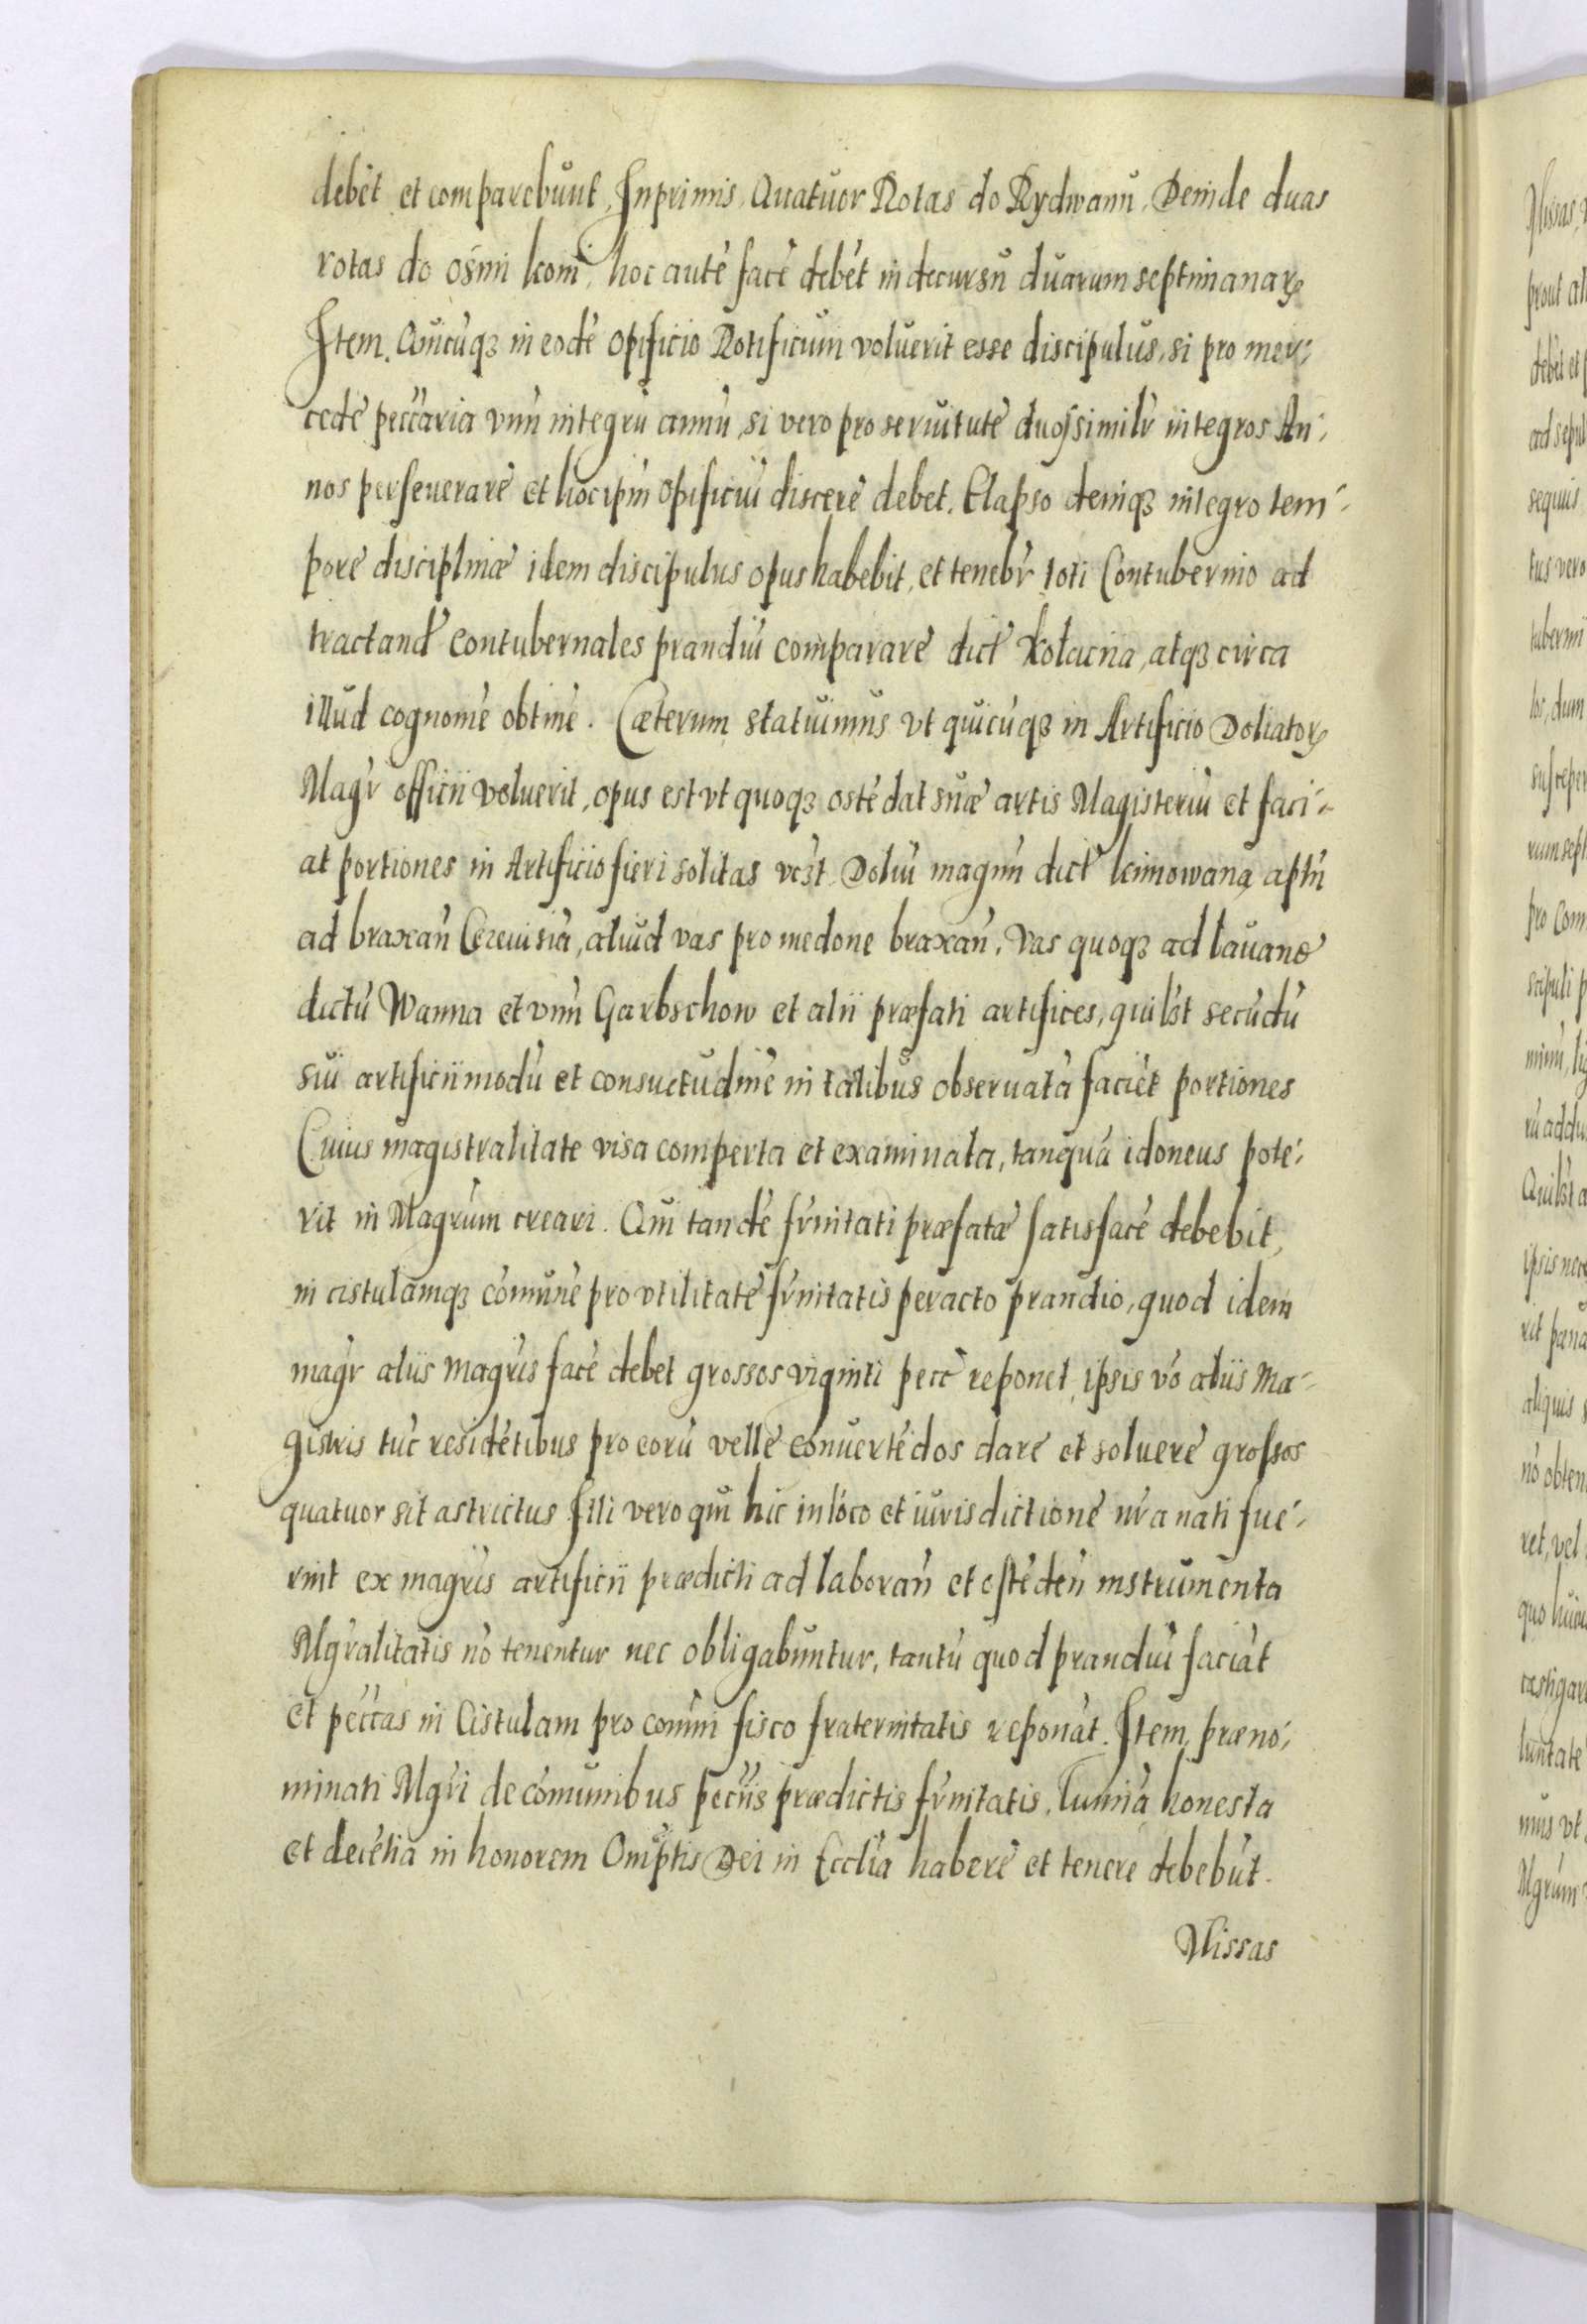 debēt et comparebunt, Inprimis, Quatuor Rotas do Rydwanu, Deinde duas
rotas do ośmi koni, hoc autē facē debēt in decursu duarum septimanarꝝ
Item, Quicūqꝫ in eodē opificio Rotificum voluerit esse discipulus, si pro mer-
cede peccaria vnū integrū annū, si vero pro seruitute duos similr integros An-
nos perseuerare et hoc ipm̄ opificiū discere debet. Elapso deniqꝫ integro tem-
pore disciplinæ idem discipulus opus habebit, et tenebr toti Contubernio ad
tractand contubernales prandiū comparare dict Kolacția, atqꝫ circa
illud cognomē obtinē. Cæterum statuimus vt quicūqꝫ in Artificio Doliatorꝝ
Magr officii voluerit, opus est vt quoqꝫ ostēdat suæ artis Magisteriū et faci-
at portiones in Artificio fieri solitas vꝫt Doliū magnū dict kimowaną aptū
ad braxan̄ Cereuisiā, aliud vas pro medone braxan̄. Vas quoqꝫ ad lauand
dictū Wanna et vnū Garbschow et alii præfati artifices, quilꝫt secūdū
sui artificii modū et consuetudinē in talibus obseruatā faciēt portiones
Cuius magistralitate visa comperta et examinata, tanquā idoneus pote-
rit in Magrum creari. Qui tandē frnitati præfatæ satisfacē debebit,
in cistulamqꝫ cōmunē pro vtilitate frnitatis peracto prandio, quod idem
magr aliis magris facē debet grossos viginti pecc reponet, ipsis vō aliis Ma-
gistris tūc residētibus pro eorū velle conuertēdos dare et soluere grossos
quatuor sit astrictus Illi vero qui hic in loco et iurisdictione nrā nati fue-
rint ex magris artificii prædicti ad laboran̄ et ostēden̄ instrumenta
Mgralitatis nō tenentur nec obligabuntur, tantū quod prandiū faciāt
et peccas in Cistulam pro com̄ni fisco fraternitatis reponāt. Item, præno-
minati Mgri de cōmunibus pecciis prædictis frnitatis, Luminā honesta
et decētia in honorem Omptis Dei in Ecclia habere et tenere debebūt.
Missas